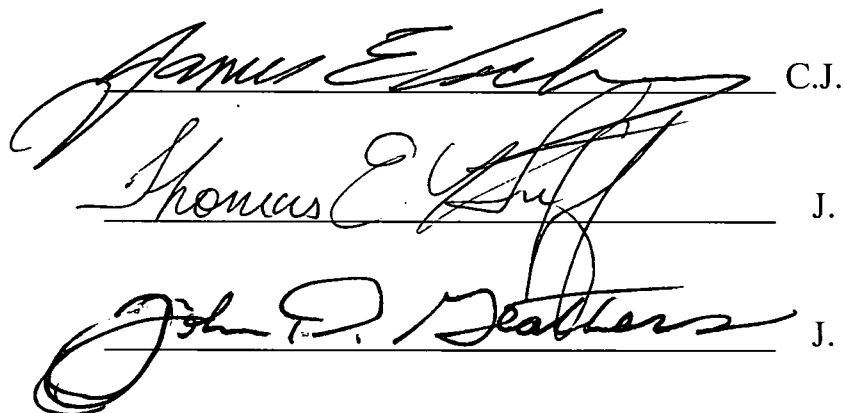 James E. C.J.
Thomas E. J.
John D. Geathers J.